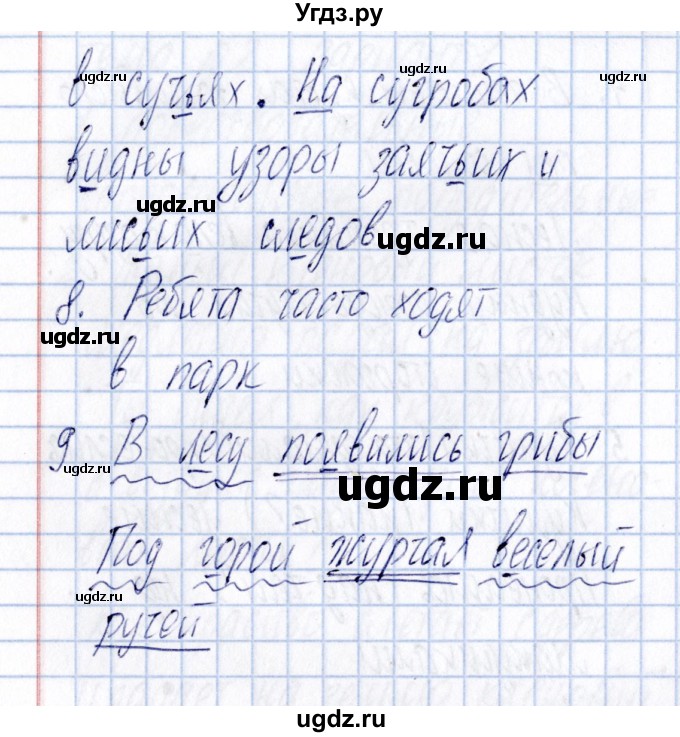 Угдз.ру
в сучьях. На сугробах
ugdz.ru ugdz.ru ugdz.ru
видны узоры заячьих и
ugdz.ru
лисьих следов
ugdz.ru
8. Ребята часто ходят
ugdz.ru
в парк
ugdz.ru
9 В лесу появились грибы
ugdz.ru
ugdz.ru
Под горой журчал веселый
ugdz.ru
ручей
ugdz.ru
ugdz.ru